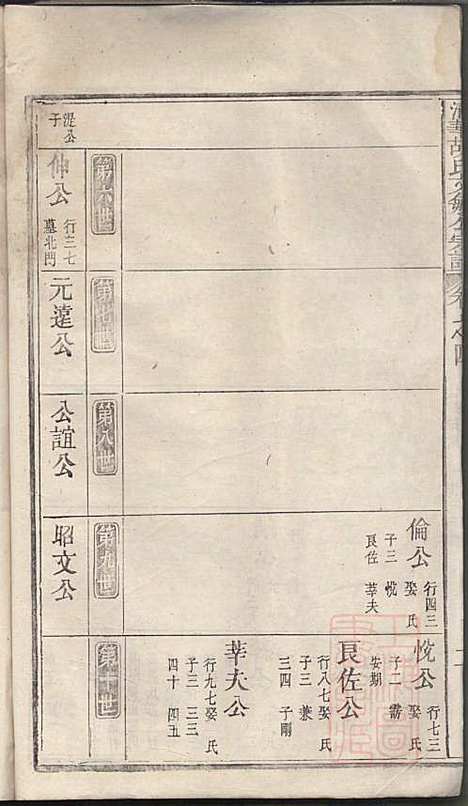 倫公
行四三
娶氏
子三 悅
良佐 莘夫
悅公
行七三
娶氏
子二 霱
安期
良佐公
行八七娶氏
子三 兼
三四 子剛
莘夫公
行九七娶氏
子三 三三
四十 四五
第六世
第七世
第八世
第九世
第十世
混公
子
仲公
行三七
墓北門
元達公
公誼公
昭文公